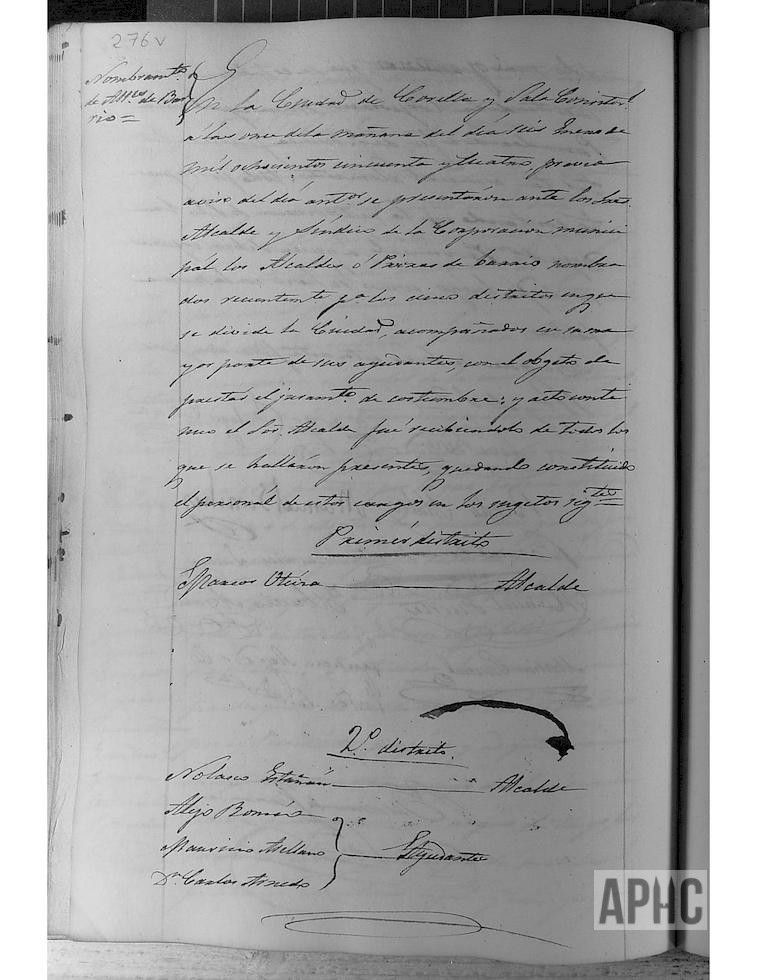 276v
Nombramto.
de Alldes. de Bar
rio=
En la Ciudad de Corella y Sala Consistorl.
a las once de la mañana del dia seis Enero de
mil ochocientos cincuenta y cuatro, previo
aviso del dia antor. se presentaron ante los Sres.
Alcalde y Sindico de la Corporación munici
pál los Alcaldes ó Párras de barrio nombra
dos recientemte. pa. los cinco distritos en que
se divide la Ciudad, acompañados en su ma
yor parte de sus ayudantes, con el obgeto de
prestar el juramto. de costumbre; y acto conti
nuo el Sor. Alcalde fué recibiendolo de todos los
que se hallaron presentes, quedando constituido
el personál de estos cargos en los sugetos sigtes=
Primér distrito
Marcos Alcalde
2º. distrito.
Nolasco Alcalde
Alejo Román
Mauricio Arellano Ayudantes
Dn. Carlos Arnedo
APHC